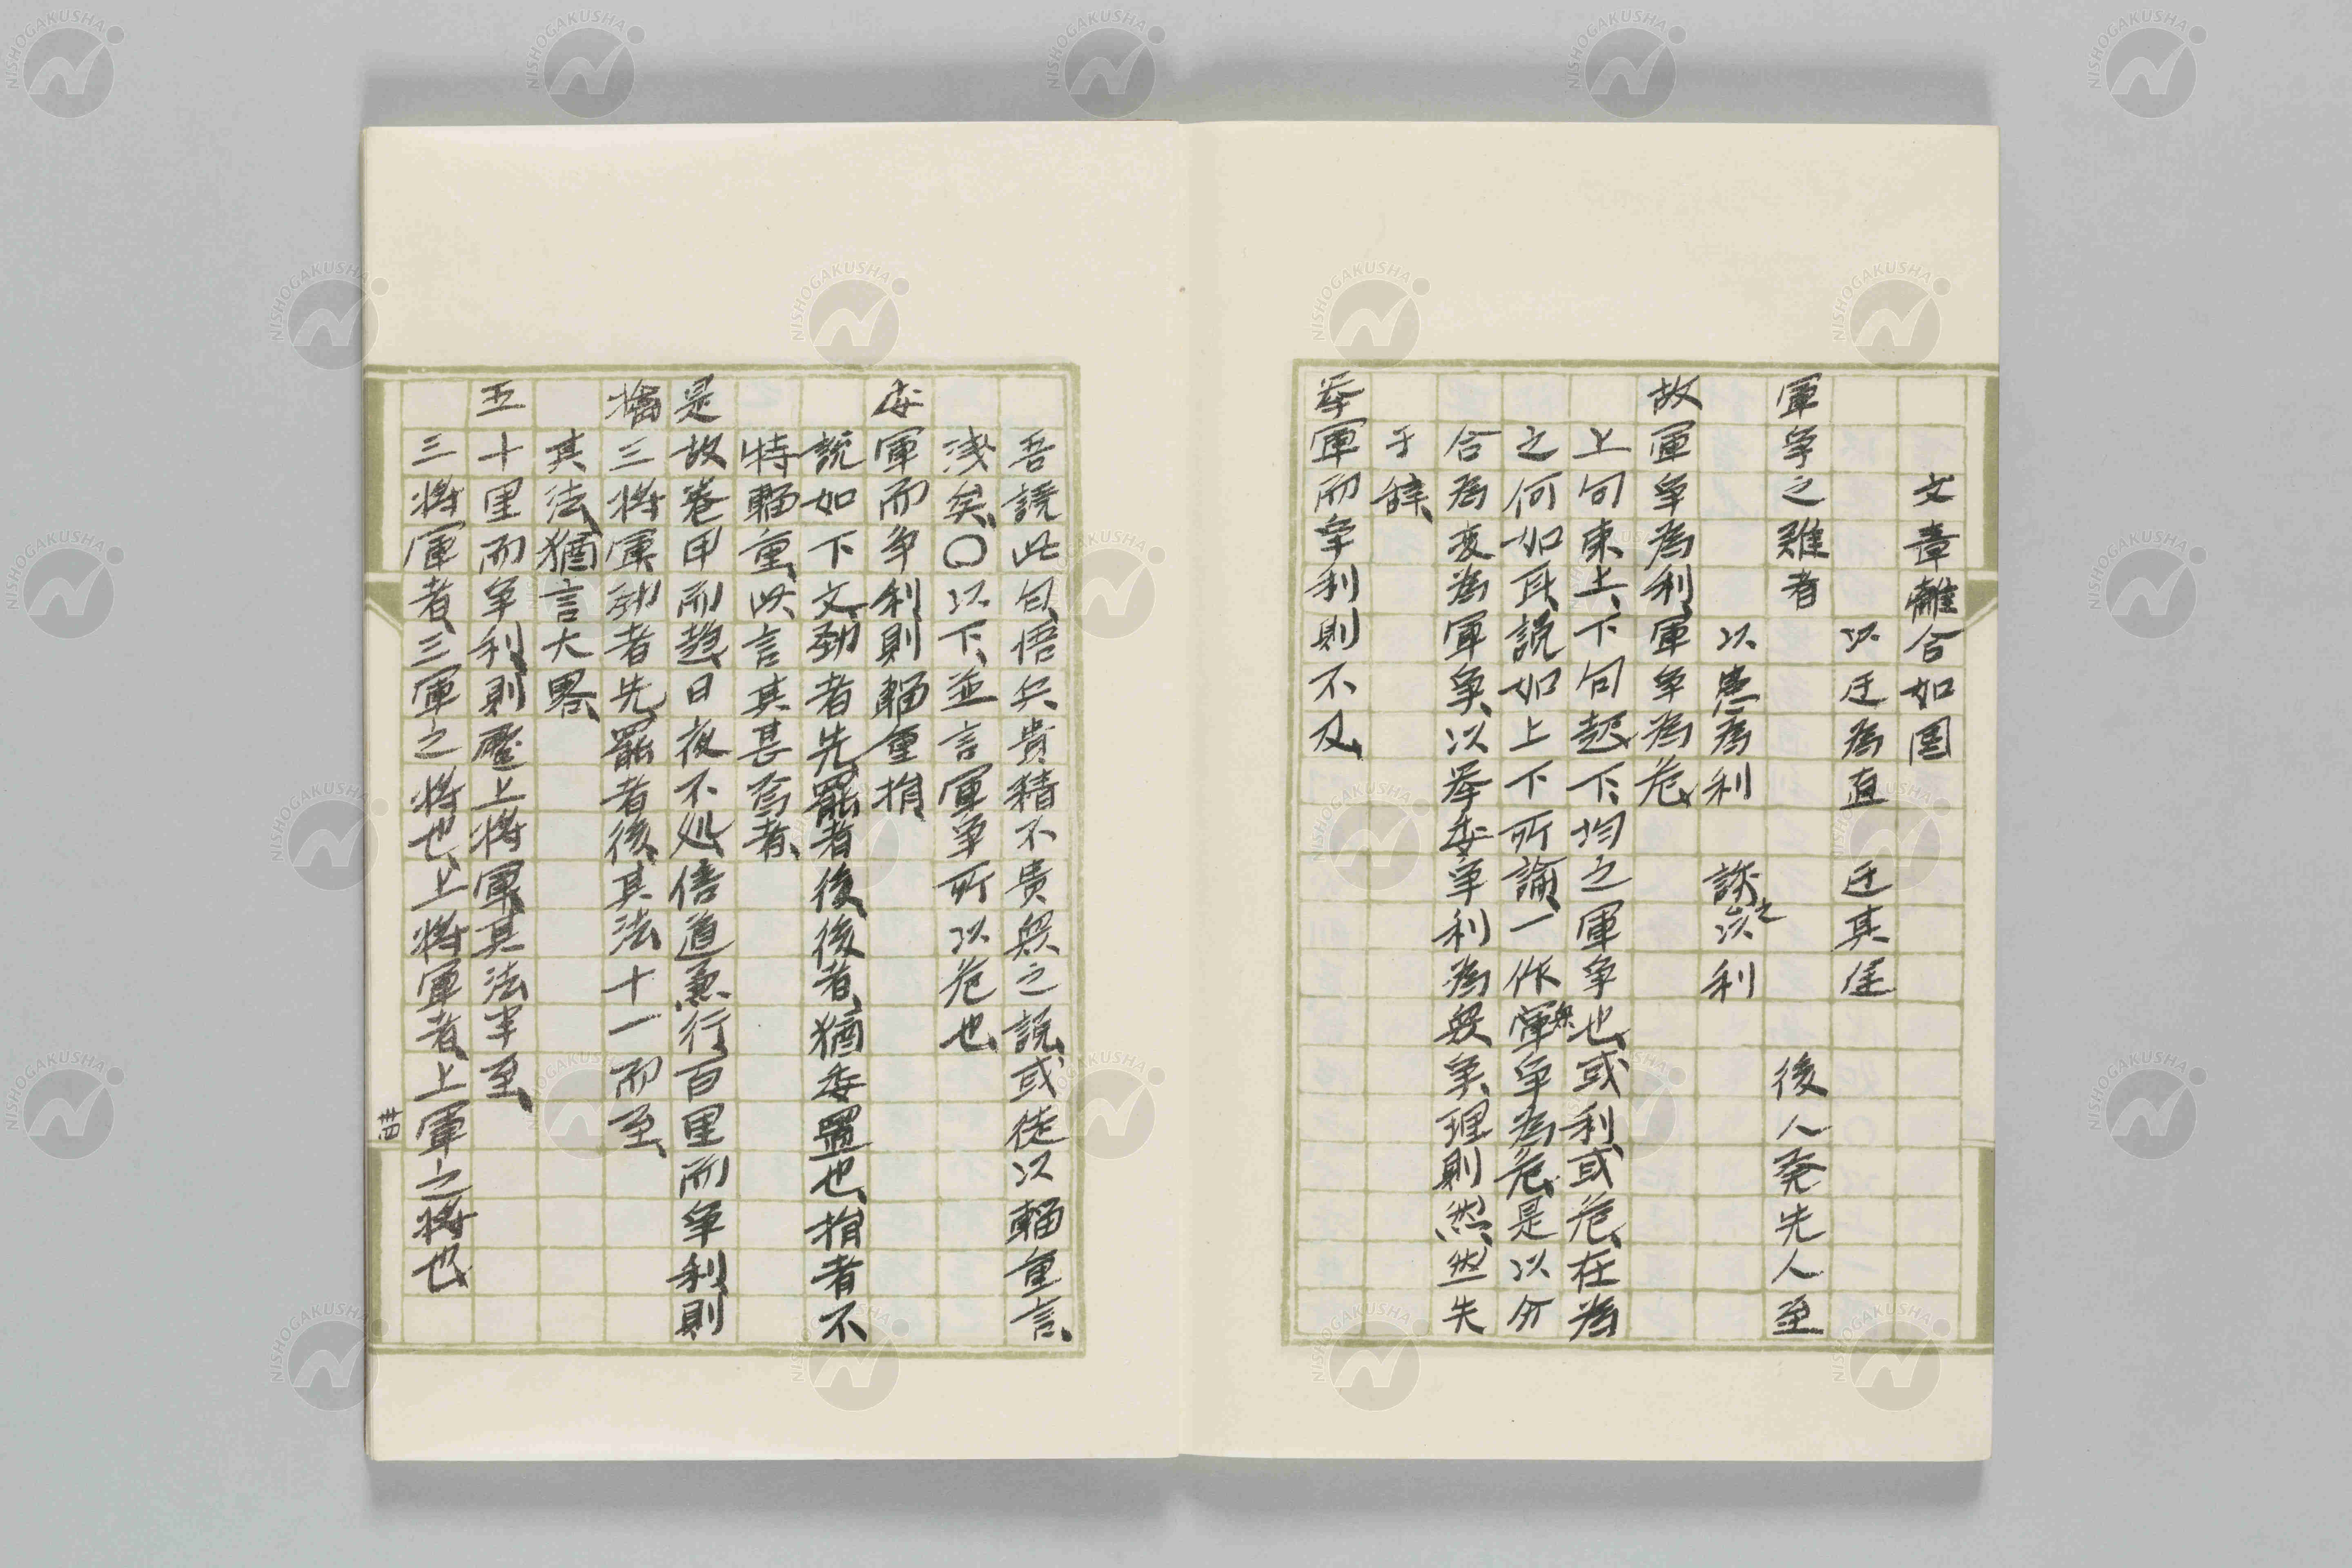 文章離合如図
以迂為直　迂其途
軍争之難者　後人発先人至
以患為利　誘之以利
故軍争為利、軍争為危、
上句束上、下句起下、均之軍争也、或利或危、在為
之何如耳、説如上下所論、一作衆争為危、是以分
合為変為軍争、以挙委争利為衆争、理則然、然失
于辞、
挙軍而争利則不及、
吾説此句、悟兵貴精不貴衆之説、或徒以輜重言、
浅矣、〇以下、並言軍争所以危也、
委軍而争利則輜重捐、
説如下文、勁者先、罷者後、後者、猶委置也、捐者不
特輜重、此言其甚焉者、
是故巻甲而趨、日夜不処、倍道兼行、百里而争利、則
擒三将軍、勁者先、罷者後、其法十一而至、
其法、猶言大畧、
五十里而争利、則蹷上将軍、其法半至、
三将軍者、三軍之将也、上将軍者、上軍之将也、